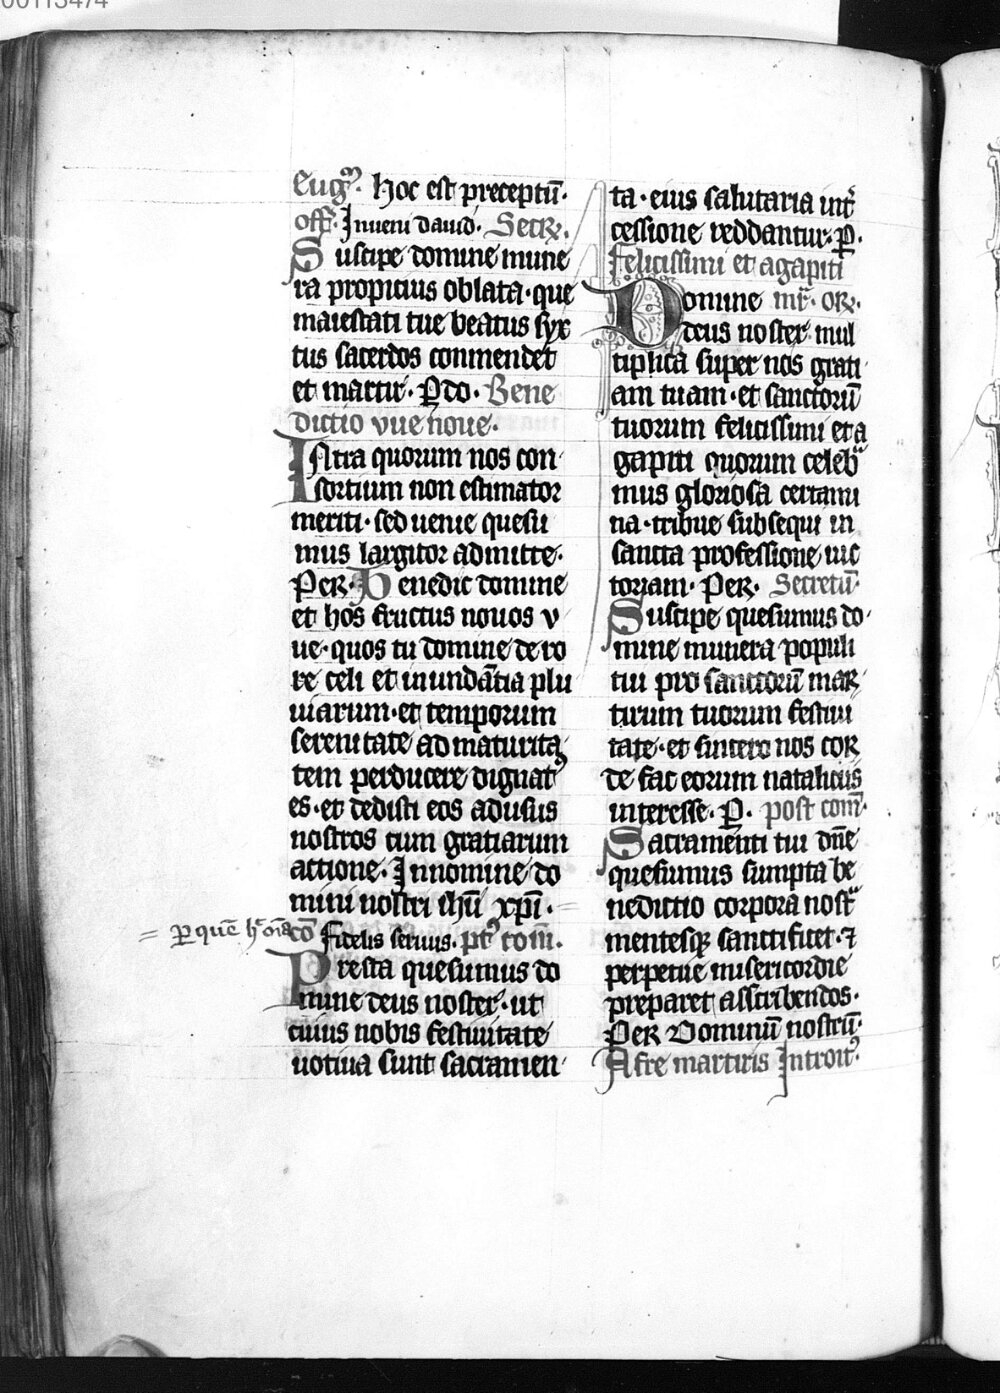 00113474
Eugm̄. Hoc est preceptū.
off̄. Inueni dauid. Secr̄.
Suscipe domine mune
ra propicius oblata. que
maiestati tue beatus syx
tus sacerdos conmendet
et martir. P̲do. Bene
dictio vue noue.
Intra quorum nos con
sortium non estimator
meriti. sed uenie quesu
mus largitor admitte.
PeR. Benedic domine
et hos fructus nouos v
ue. quos tu domine de ro
re celi et inundātia plu
uiarum. et temporum
serenitate ad maturita
tem perducere dignat᷒
es. et dedisti eos ad usus
nostros cum gratiarum
actione. In nomine do
mini nostri ihū xp̄i.
= ꝑ quē h̄ oīa cō Fidelis seruus. pt᷒ com̄.
Presta quesumus do
mine deus noster. ut
cuius nobis festiuitate
uotiua sunt sacramen
ta. eius salutaria int̄
cessione reddantur. P̲.
Felicissimi et agapiti
Domine mr̄. oR̄.
deus noster mul
tiplica super nos grati
am tuam. et sanctorū
tuorum felicissimi et a
gapiti quorum celeb̄
mus gloriosa certami
na. tribue subsequi in
sancta professione uic
toriam. PeR. Secretū.
Suscipe quesumus do
mine munera populi
tui pro sanctorū maR
tirum tuorum festiui
tate. et sincero nos coR
de fac eorum nataliciis
interesse. P̲. post com̄.
Sacramenti tui dn̄e
quesumus sumpta be
nedictio corpora nost̄
mentesqꝫ sanctificet. ⁊
perpetue misericordie
preparet asscribendos.
PeR Dominū nostrū.
Afre martiris Introit᷒.